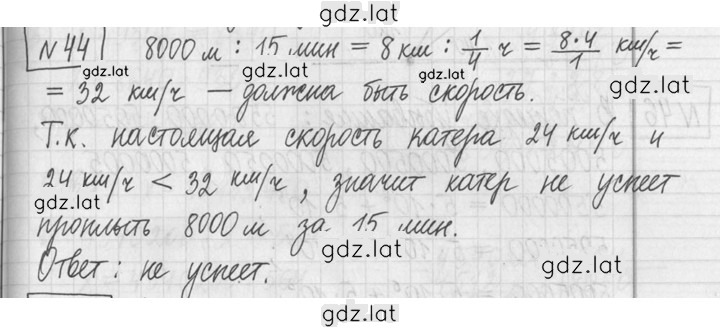 gdz.lat
N 44 8000 м : 15 мин = 8 км : 1/4 ч = 8·4/1 км/ч =
gdz.lat gdz.lat gdz.lat
= 32 км/ч — должна быть скорость.
gdz.lat
Т.к. настоящая скорость катера 24 км/ч и
24 км/ч < 32 км/ч, значит катер не успеет
gdz.lat
проплыть 8000 м за 15 мин.
gdz.lat
Ответ: не успеет.
gdz.lat
gdz.lat